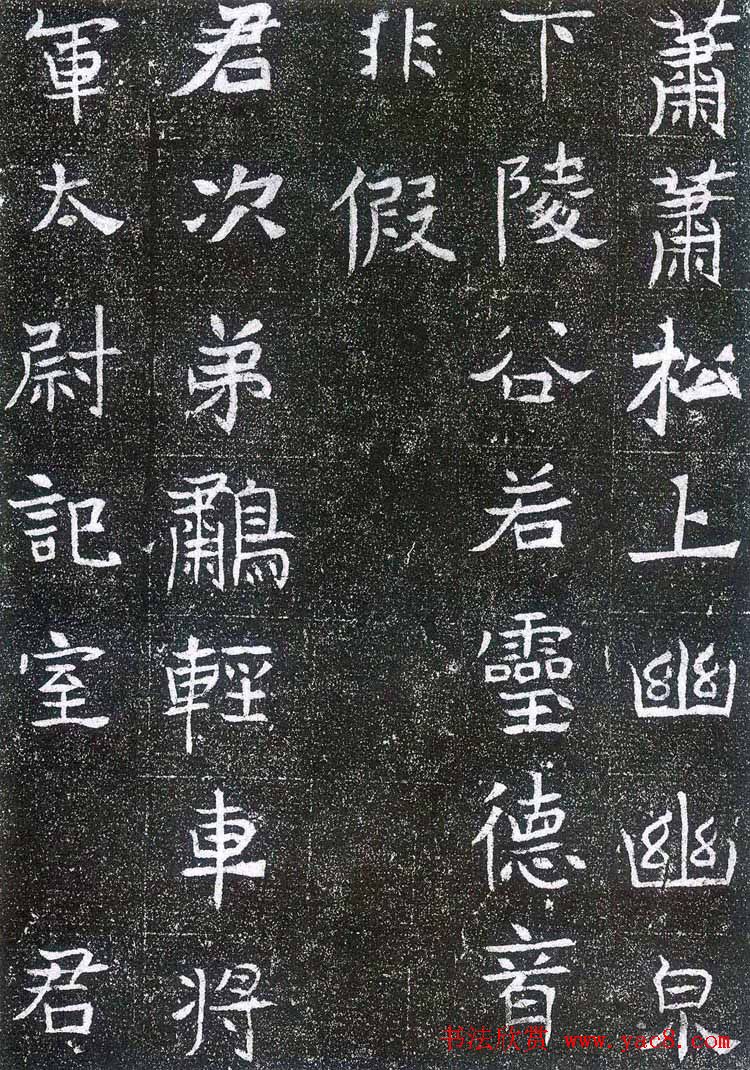 蕭蕭松上幽幽泉
下陵谷若靈德音
非假
君次弟鷫輕車将
軍太尉記室君
书法欣赏 www.yac8.com